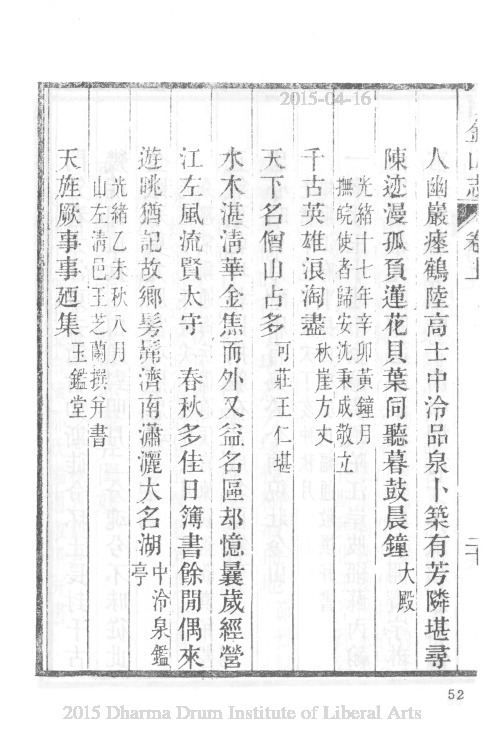 2015-04-16
金山志
卷上
二十
人幽巖瘞鶴陸高士中泠品泉卜築有芳隣堪尋
陳迹漫孤負蓮花貝葉同聽暮鼓晨鐘 大殿
光緒十七年辛卯黃鐘月
撫皖使者歸安沈秉成敬立
千古英雄浪淘盡 秋崖方丈
天下名僧山占多 可莊王仁堪
水木湛清華金焦而外又益名區却憶曩歲經營
江左風流賢太守 春秋多佳日簿書餘閒偶來
遊眺猶記故鄉髣髴濟南瀟灑大名湖 中泠泉鑑亭
光緒乙未秋八月
山左清邑王芝蘭撰并書
天旌厥事事廼集 玉鑑堂
52
2015 Dharma Drum Institute of Liberal Arts